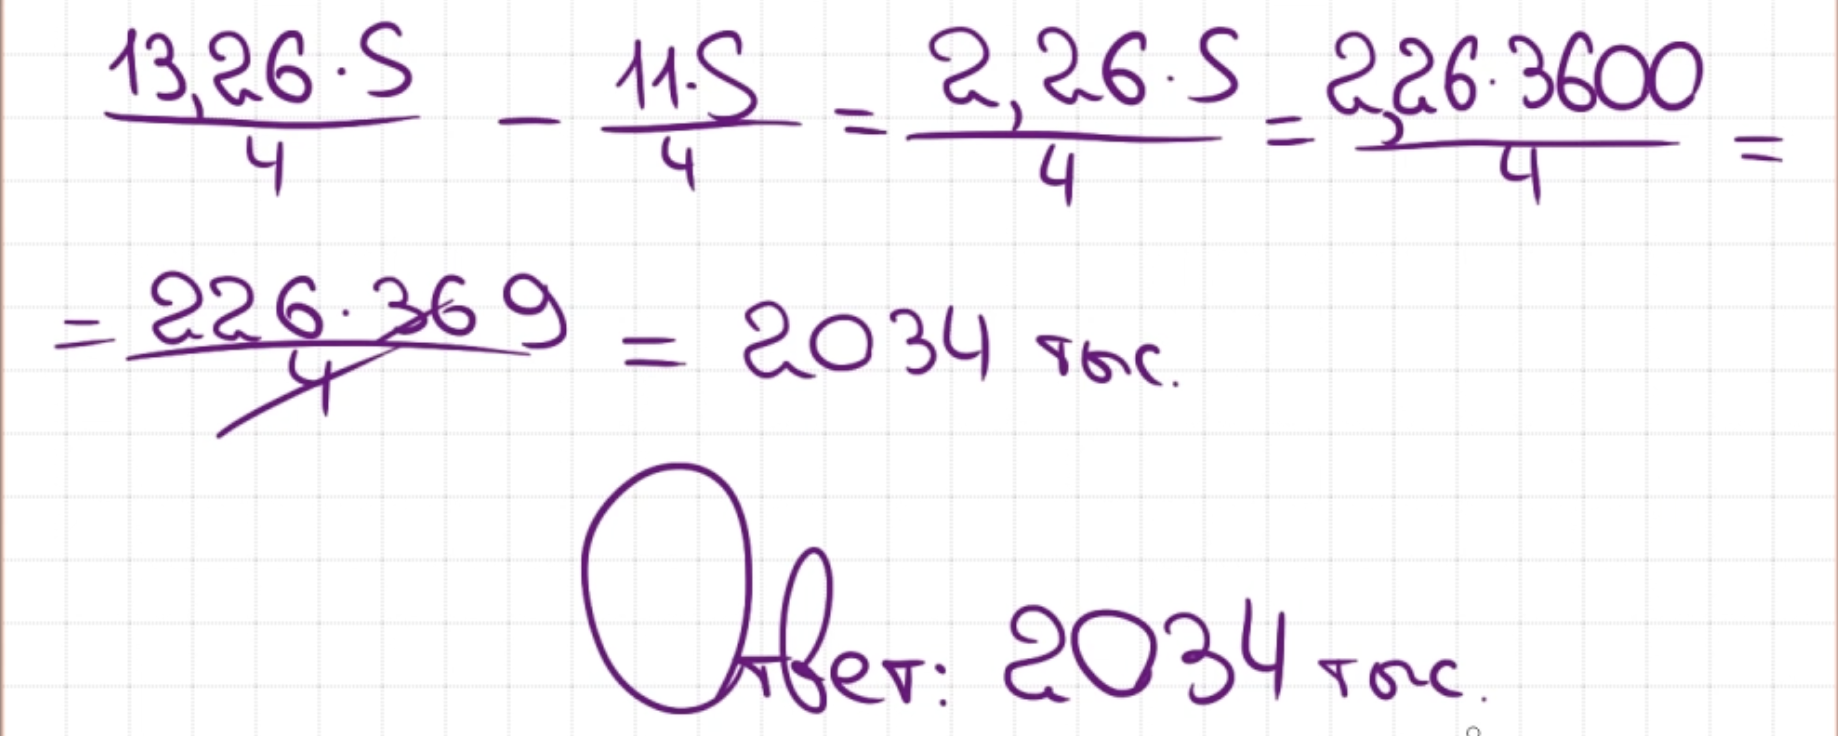 13,26·S/4 − 11·S/4 = 2,26·S/4 = 2,26·3600/4 =
= 226·36 9/4 = 2034 тыс.
Ответ: 2034 тыс.